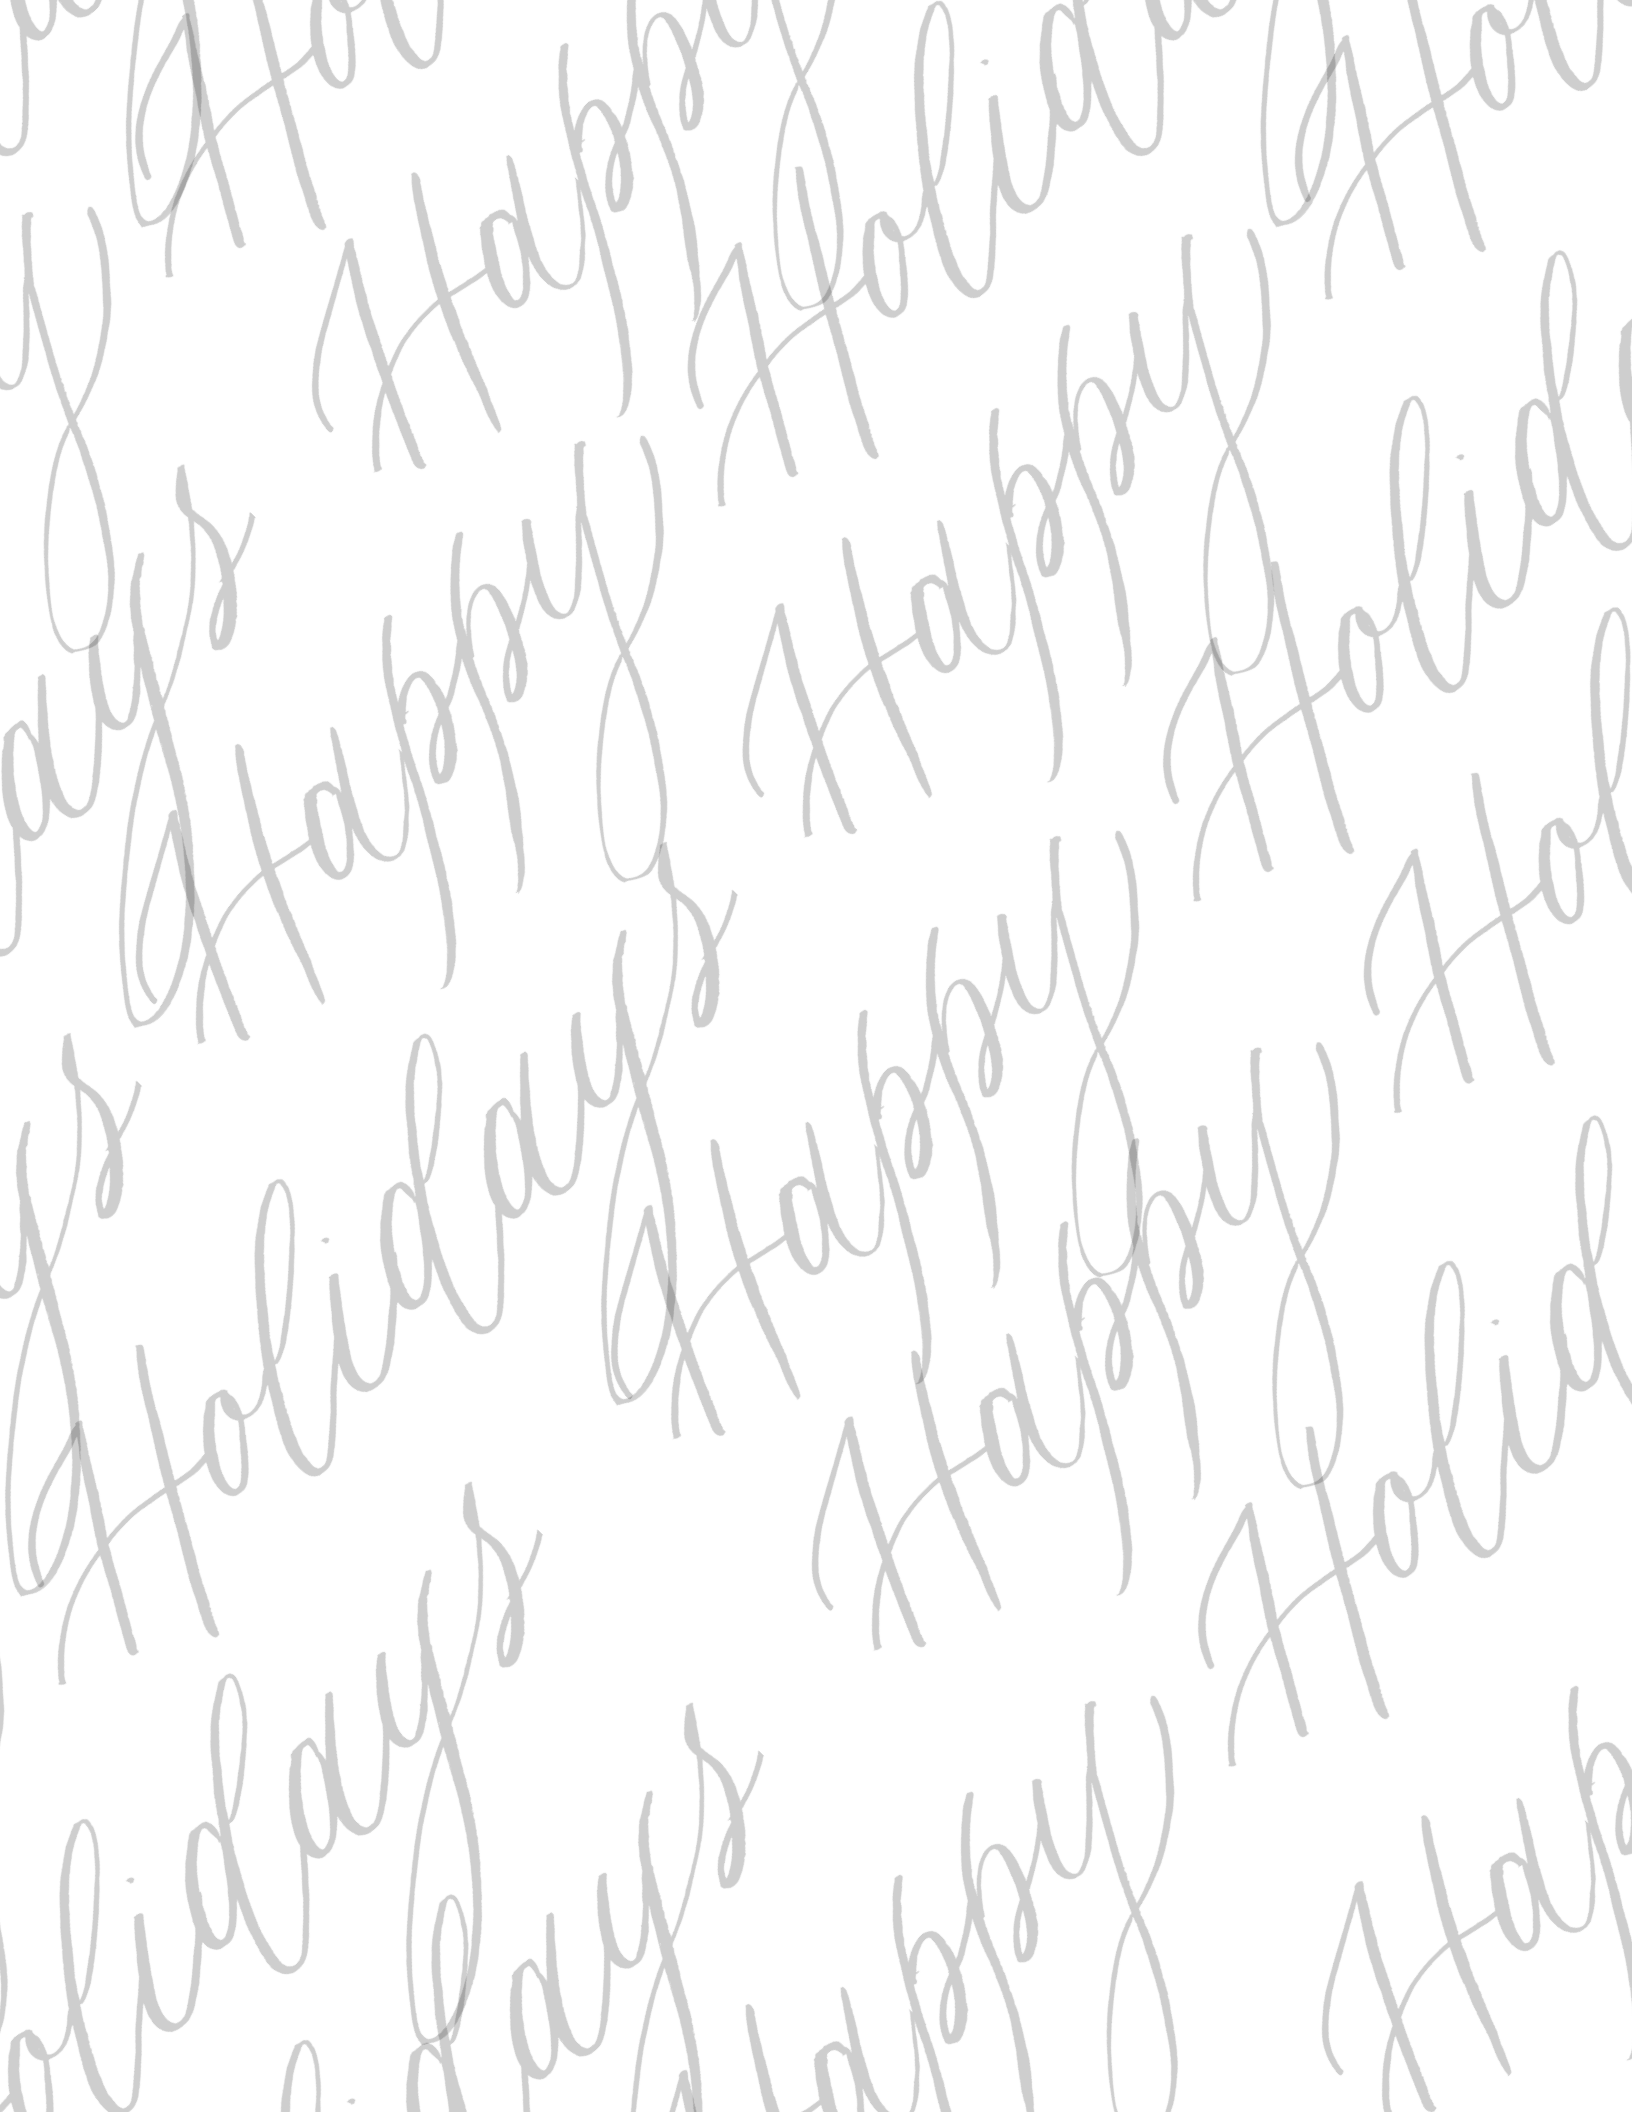 Happy Holidays
Happy Holidays
Happy Holidays
Happy Holidays
Happy Holidays
Happy Holidays
Happy Holidays
Happy